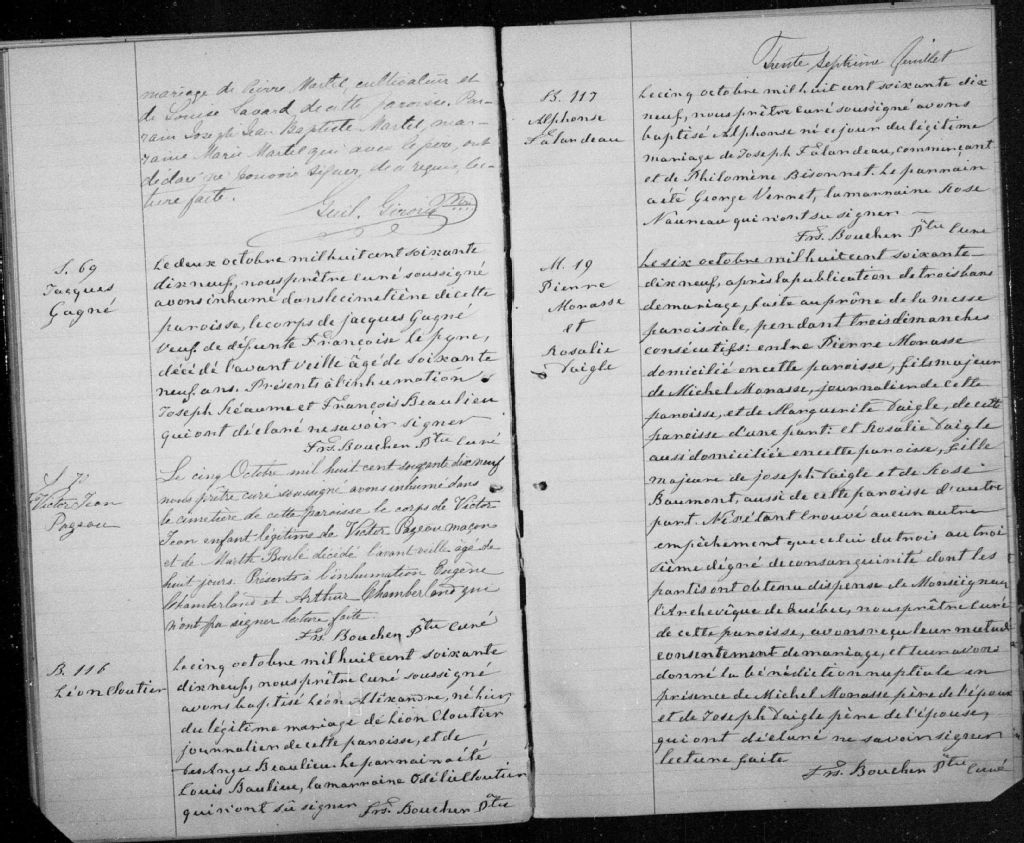 mariage de Pierre Martel, cultivateur et
de Louise Savard, de cette paroisse, Par-
rain Joseph Jean Baptiste Martel, mar-
raine Marie Martel qui avec le père, ont
déclaré ne pouvoir signer, de ce requis, lec-
ture faite.
Guil. Giroux Ptre
S. 69
Jacques
Gagné
Le deux octobre mil huit cent soixante
dix neuf, nous prêtre curé soussigné
avons inhumé dans le cimetière de cette
paroisse, le corps de Jacques Gagné
veuf de défunte Françoise
décédé l'avant veille âgé de soixante
neuf ans. Présents à l'inhumation
Joseph Réaume et François Beaulieu
qui ont déclaré ne savoir signer
Frs. Boucher Ptre Curé
S. 70
Victor Jean
Pageau
Le cinq Octobre mil huit cent soixante dix neuf
nous prêtre curé soussigné avons inhumé dans
le cimetière de cette paroisse le corps de Victor
Jean enfant légitime de Victor Pageau maçon
et de Marthe Boulé décédé l'avant veille âgé de
huit jours. Présents à l'inhumation Eugène
Chamberland et Arthur Chamberland qui
n'ont pu signer lecture faite.
Frs. Boucher Ptre Curé
B. 116
Léon Cloutier
Le cinq octobre mil huit cent soixante
dix neuf, nous prêtre curé soussigné
avons baptisé Léon Aléxandre, né hier,
du légitime mariage de Léon Cloutier
journalier de cette paroisse, et de
Des Anges Beaulieu. Le parrain a été
Louis Baulieu, la marraine Odélie Cloutier
qui n'ont sû signer Frs. Boucher Ptre
Trente Septième feuillet
B. 117
Alphonse
Falandeau
Le cinq octobre mil huit cent soixante dix
neuf, nous prêtre curé soussigné avons
baptisé Alphonse né ce jour du légitime
mariage de Joseph Falandeau, commerçant
et de Philomène Bisonnet. Le parrain
a été George Verret, la marraine Rose
Nauneau qui n'ont su signer
Frs. Boucher Ptre Curé
M. 19
Pierre
Monasse
et
Rosalie
Daigle
Le six octobre mil huit cent soixante
dix neuf, après la publication de trois bans
de mariage, faite au prône de la messe
paroissiale, pendant trois dimanches
consécutifs: entre Pierre Monasse
domicilié en cette paroisse, fils majeur
de Michel Monasse, journalier de cette
paroisse, et de Marguerite Daigle, de cette
paroisse d'une part: et Rosalie Daigle
aussi domiciliée en cette paroisse, fille
majeure de Joseph Daigle et de Rose
Baumont, aussi de cette paroisse d'autre
part. Ne s'étant trouvé aucun autre
empêchement que celui du trois au troi
sième dégré de consanguinité dont les
partis ont obtenu dispense de Monseigneur
l'Archevêque de Québec, nous prêtre curé
de cette paroisse, avons reçu leur mutuel
consentement de mariage, et leur avons
donné la bénédiction nuptiale en
présence de Michel Monasse père de l'époux
et de Joseph Daigle père de l'épouse,
qui ont déclaré ne savoir signer
lecture faite
Frs. Boucher Ptre Curé